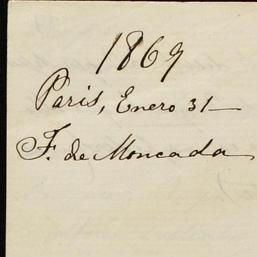 1869
Paris, Enero 31—
F. de Moncada